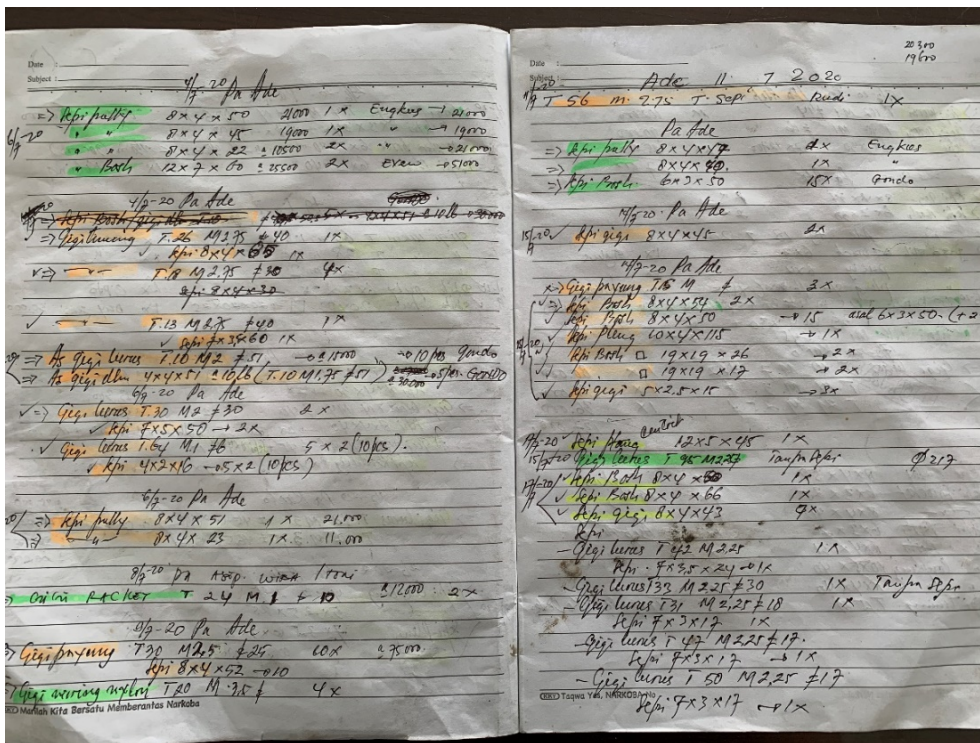 Date :
Subject :
4/7-20 Pa Ade
=> Sepi pully 8x4x50 21000 1x Engkus → 21000
6/7-20 " " 8x4x45 19000 1x " → 19000
" " 8x4x22 a 10500 2x " → 21000
" Bosh 12x7x60 a 25500 2x → 51000
4/7-20 Pa Ade
T.26 M 2,75 ≠ 40 1x
✓ Sepi 8x4x65 1x
✓ => T.18 M 2,75 ≠ 30 4x
Sepi 8x4x30
✓ T.13 M 2,75 ≠ 40 1x
✓ Sepi 7x3x60 1x
=> As gigi lurus T.10 M2 ≠ 51 → a 15000 → 10 pcs Gondo
=> As gigi dlm 4x4x51 (T.10 M1,75 ≠ 51) → 5 pcs Gondo
6/7-20 Pa Ade
✓ => Gigi lurus T.30 M2 ≠ 30 2x
✓ Sepi 7x5x50 → 2x
✓ Gigi lurus T.64 M.1 ≠ 6 5x2 (10 pcs).
✓ Sepi 4x2x16 → 5x2 (10 pcs)
6/7-20 Pa Ade
=> Sepi pully 8x4x51 1x 21.000
=> " 8x4x23 1x 11.000
8/7-20 Pa Asep
RACKET T 24 M.1 ≠ 10 a 12000 2x
9/7-20 Pa Ade
=> Gigi payung T30 M2,5 ≠ 25 10x a 75000.
Sepi 8x4x52 → 10
Gigi nylon T20 M 3,5 ≠ 4x
KKY Marilah Kita Bersatu Memberantas Narkoba
20300
19600
Date :
Subject :
Ade 11. 7 2020
T 56 m. 2.75 T. Sepi Rudi 1x
Pa Ade
=> Sepi pully 8x4x47 2x Engkus
=> 8x4x40. 1x "
=> Sepi Bosh 6x3x50 15x Gondo
14/7-20. Pa Ade
15/7-20 ✓ Sepi gigi 8x4x45 2x
14/7-20 Pa Ade
x-> Gigi payung T.15 M ≠ 3x
✓ => Sepi Bosh 8x4x54 2x
✓ Sepi Bosh 8x4x50 → 15 asal 6x3x50. (+2
✓ Sepi 10x4x115 → 1x
✓ Sepi Bosh □ 19x19x26 → 2x
✓ □ 19x19x17 → 2x
✓ Sepi gigi 5x2.5x15 → 3x
17/7-20 ✓ Sepi 12x5x45 1x
15/7-20 Gigi lurus T 95 M2,25 Tanpa Sepi Ø 217
17/7-20 ✓ Sepi Bosh 8x4x50 1x
✓ Sepi Bosh 8x4x66 1x
✓ Sepi gigi 8x4x43
Sepi
- Gigi lurus T 42 M 2,25 1x
Sepi. 7x3,5x24 → 1x
- Gigi lurus T33 M 2,25 ≠ 30 1x Tanpa Sepi
- Gigi lurus T31 M 2,25 ≠ 18 1x
Sepi 7x3x17 1x
- Gigi lurus T 47 M 2,25 ≠ 17.
Sepi 7x3x17 → 1x
- Gigi lurus T 50 M 2,25 ≠ 17
Sepi 7x3x17 → 1x
KKY Taqwa Yes, NARKOBA No